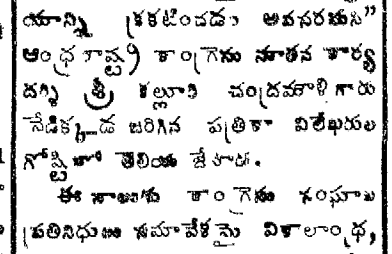 యాన్ని ప్రకటించడం అవసరమని”
ఆంధ్ర రాష్ట్ర కాంగ్రెసు నూతన కార్య
దర్శి శ్రీ కల్లూరి చంద్రమౌళి గారు
నేడిక్కడ జరిగిన పత్రికా విలేఖరుల
గోష్టిలో తెలియ జేశారు.
ఈ నాలుగు కాంగ్రెసు సంఘాల
ప్రతినిధులు సమావేశమై విశాలాంధ్ర,